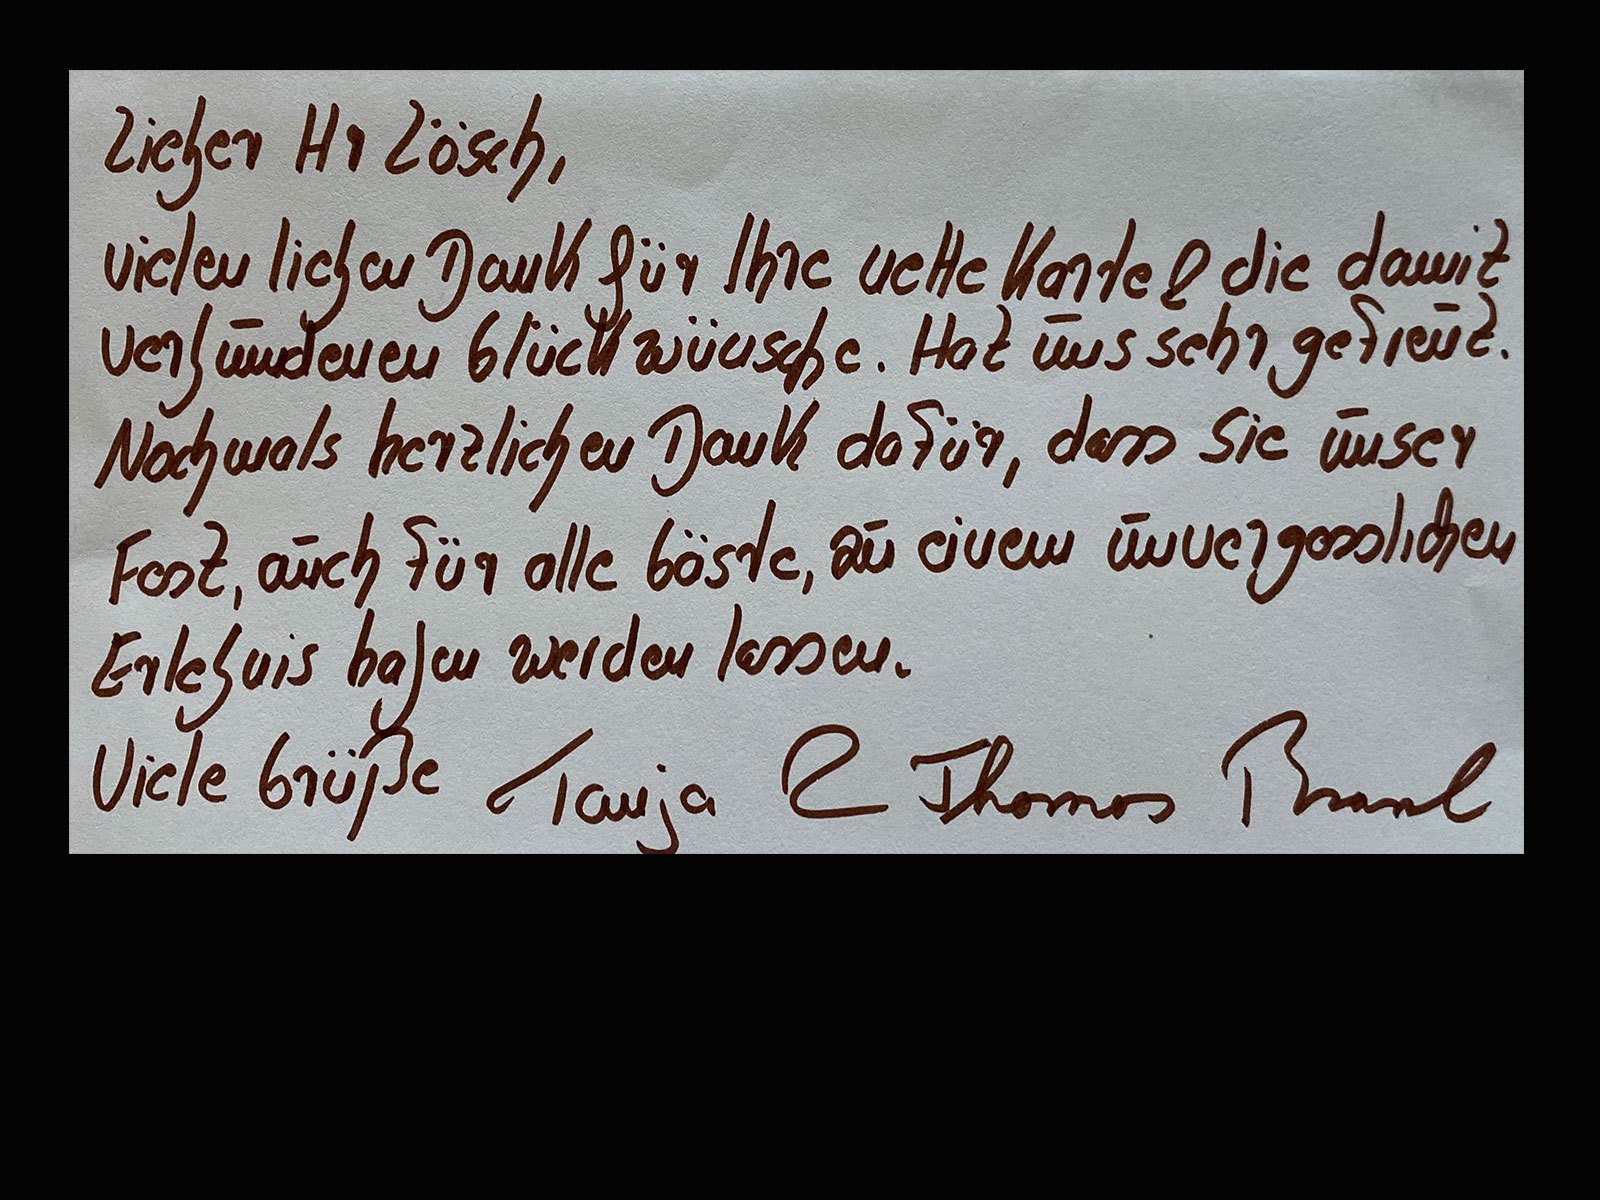 Lieber Hr Lösch,
vielen lieben Dank für Ihre nette Karte & die damit
verbundenen Glückwünsche. Hat uns sehr gefreut.
Nochmals herzlichen Dank dafür, dass Sie unser
Fest, auch für alle Gäste, zu einem unvergesslichen
Erlebnis haben werden lassen.
Viele Grüße Tanja & Thomas